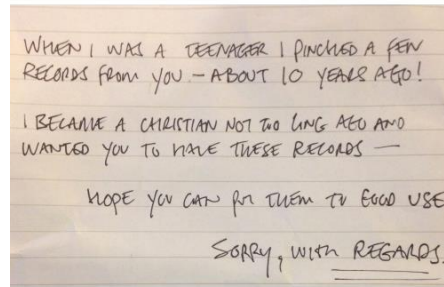 WHEN I WAS A TEENAGER I PINCHED A FEW
RECORDS FROM YOU – ABOUT 10 YEARS AGO!
I BECAME A CHRISTIAN NOT TOO LONG AGO AND
WANTED YOU TO HAVE THESE RECORDS —
HOPE YOU CAN PUT THEM TO GOOD USE
SORRY, WITH REGARDS.